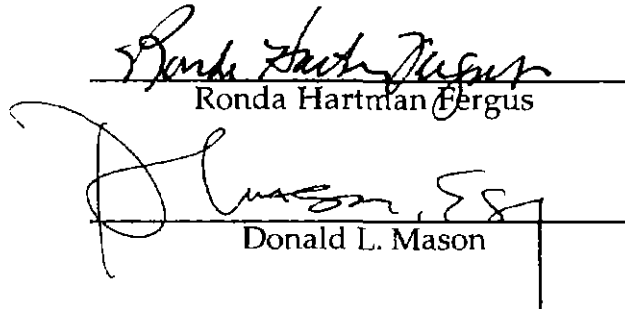 Ronda Hartman Fergus
Ronda Hartman Fergus
D L Mason, Esq
Donald L. Mason